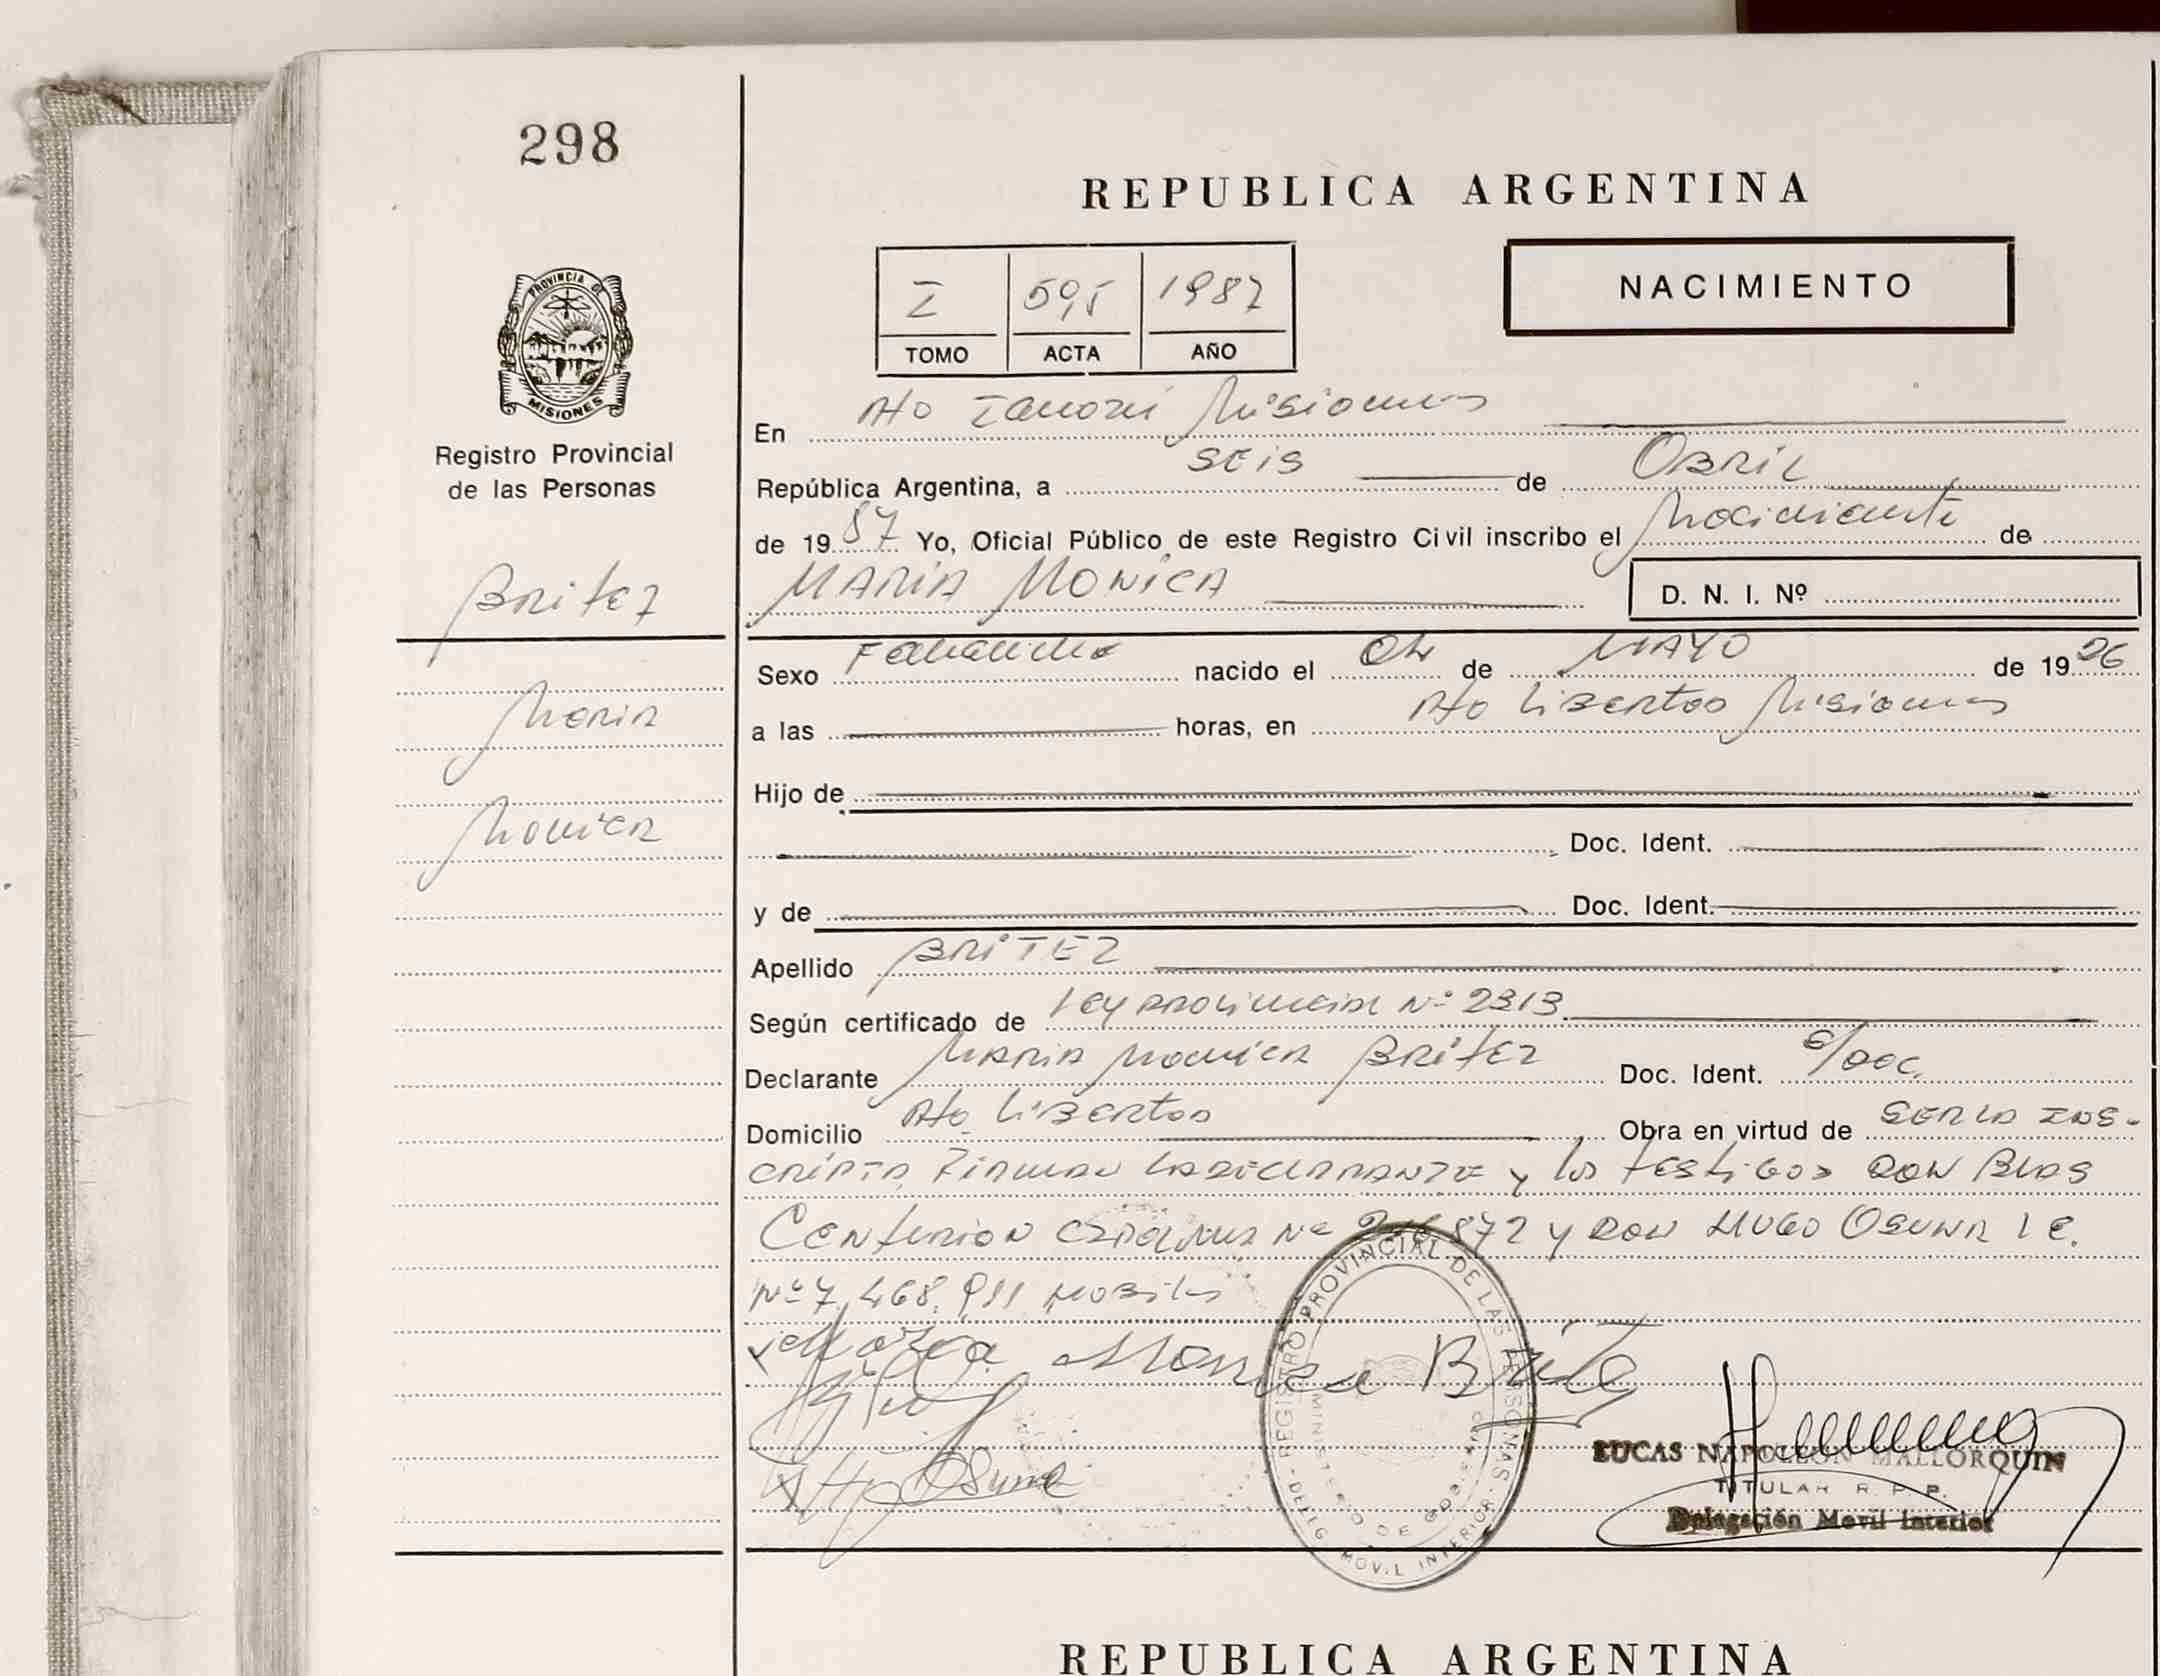 298
REPUBLICA ARGENTINA
NACIMIENTO
I 595 1987
TOMO ACTA AÑO
PROVINCIA DE
MISIONES
Registro Provincial
de las Personas
En Pto Misiones
República Argentina, a SEIS de ABRIL
de 1987 Yo, Oficial Público de este Registro Civil inscribo el Nacimiento de
MARIA MONICA
D. N. I. Nº
Britez
Maria
Monica
Sexo Femenino nacido el 04 de MAYO de 1926
a las horas, en Pto Libertad Misiones
Hijo de
Doc. Ident.
y de Doc. Ident.
Apellido BRITEZ
Según certificado de Ley Provincial Nº 2313
Declarante Maria Monica Britez Doc. Ident. s/Doc.
Domicilio Pto Libertad Obra en virtud de SER LA INS-
CRIPTA Firman la declarante y los testigos DON BLAS
Centurion Nº 872 y DON HUGO OSUNA L E.
Nº 7.468.911
Maria Monica Britez
Osuna
REGISTRO PROVINCIAL DE LAS PERSONAS - DELEG. MOVIL INTERIOR -
MINISTERIO DE GOBIERNO
LUCAS NAPOLEON MALLORQUIN
TITULAR R. P. P.
Delegación Movil Interior
REPUBLICA ARGENTINA